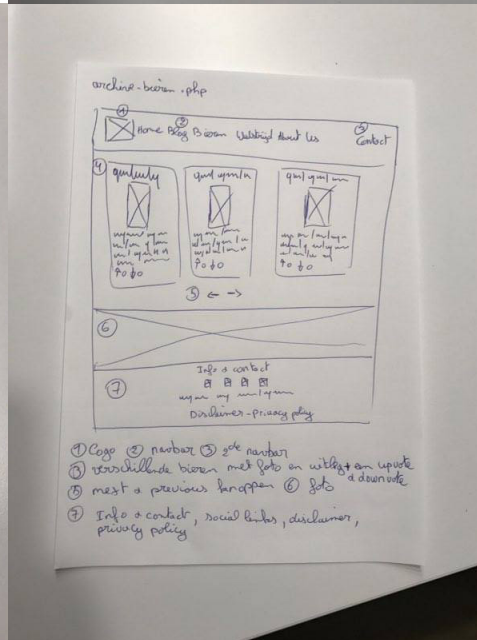 archive-bieren.php
① ② ③
Home Blog Bieren Wedstrijd About Us Contact
④
⑤ ← →
⑥
⑦ Info & contact
Disclaimer - privacy policy
① Logo ② navbar ③ 2de navbar
③ verschillende bieren met foto en uitleg + een upvote
& downvote
⑤ next & previous knoppen ⑥ foto
⑦ Info & contact, social links, disclaimer,
privacy policy